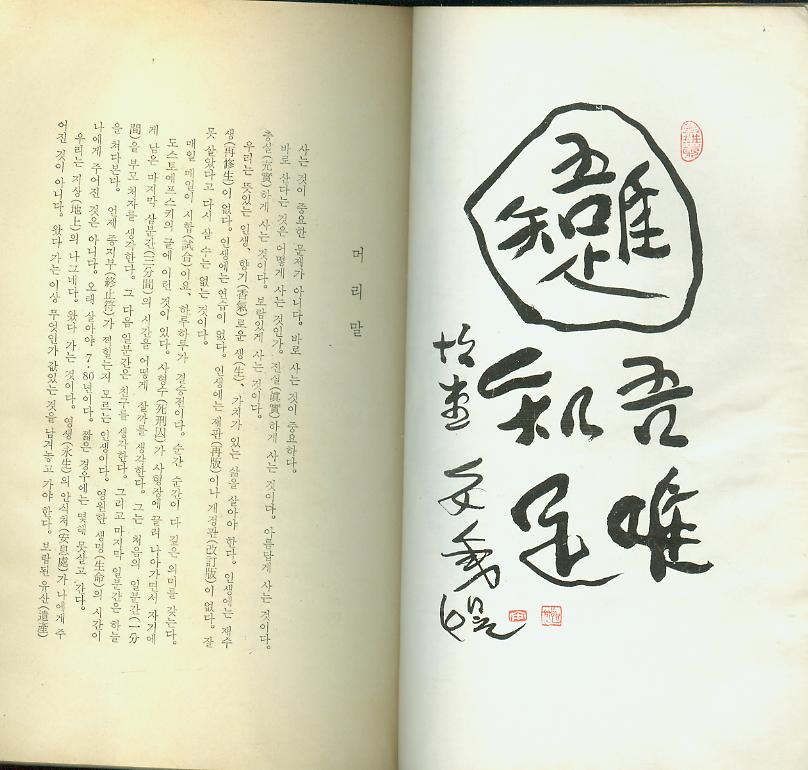 吾唯
知足
머리말
사는 것이 중요한 문제가 아니다. 바로 사는 것이 중요하다.
바로 산다는 것은 어떻게 사는 것인가. 진실(眞實)하게 사는 것이다. 아름답게 사는 것이다.
충실(充實)하게 사는 것이다. 보람있게 사는 것이다.
우리는 뜻있는 인생, 향기(香氣)로운 생(生), 가치가 있는 삶을 살아야 한다. 인생에는 재수
생(再修生)이 없다. 인생에는 연습이 없다. 인생에는 재판(再版)이나 개정판(改訂版)이 없다. 잘
못 살았다고 다시 살 수는 없는 것이다.
매일 매일이 시합(試合)이요, 하루하루가 결승전이다. 순간 순간이 다 깊은 의미를 갖는다.
도스토예프스키의 글에 이런 것이 있다. 사형수(死刑囚)가 사형장에 끌려 나아가면서 자기에
게 남은 마지막 삼분간(三分間)의 시간을 어떻게 살까를 생각한다. 그는 처음의 일분간(一分
間)을 부모 처자를 생각한다. 그 다음 일분간은 친구를 생각한다. 그리고 마지막 일분간은 하늘
을 쳐다본다. 언제 종지부(終止符)가 찍힐는지 모르는 인생이다. 영원한 생명(生命)의 시간이
나에게 주어진 것은 아니다. 오래 살아야 7·80년이다. 짧은 경우에는 몇해 못살고 간다.
우리는 지상(地上)의 나그네다. 왔다 가는 것이다. 영생(永生)의 안식처(安息處)가 나에게 주
어진 것이 아니다. 왔다 가는 이상 무엇인가 값있는 것을 남겨놓고 가야 한다. 보람된 유산(遺產)